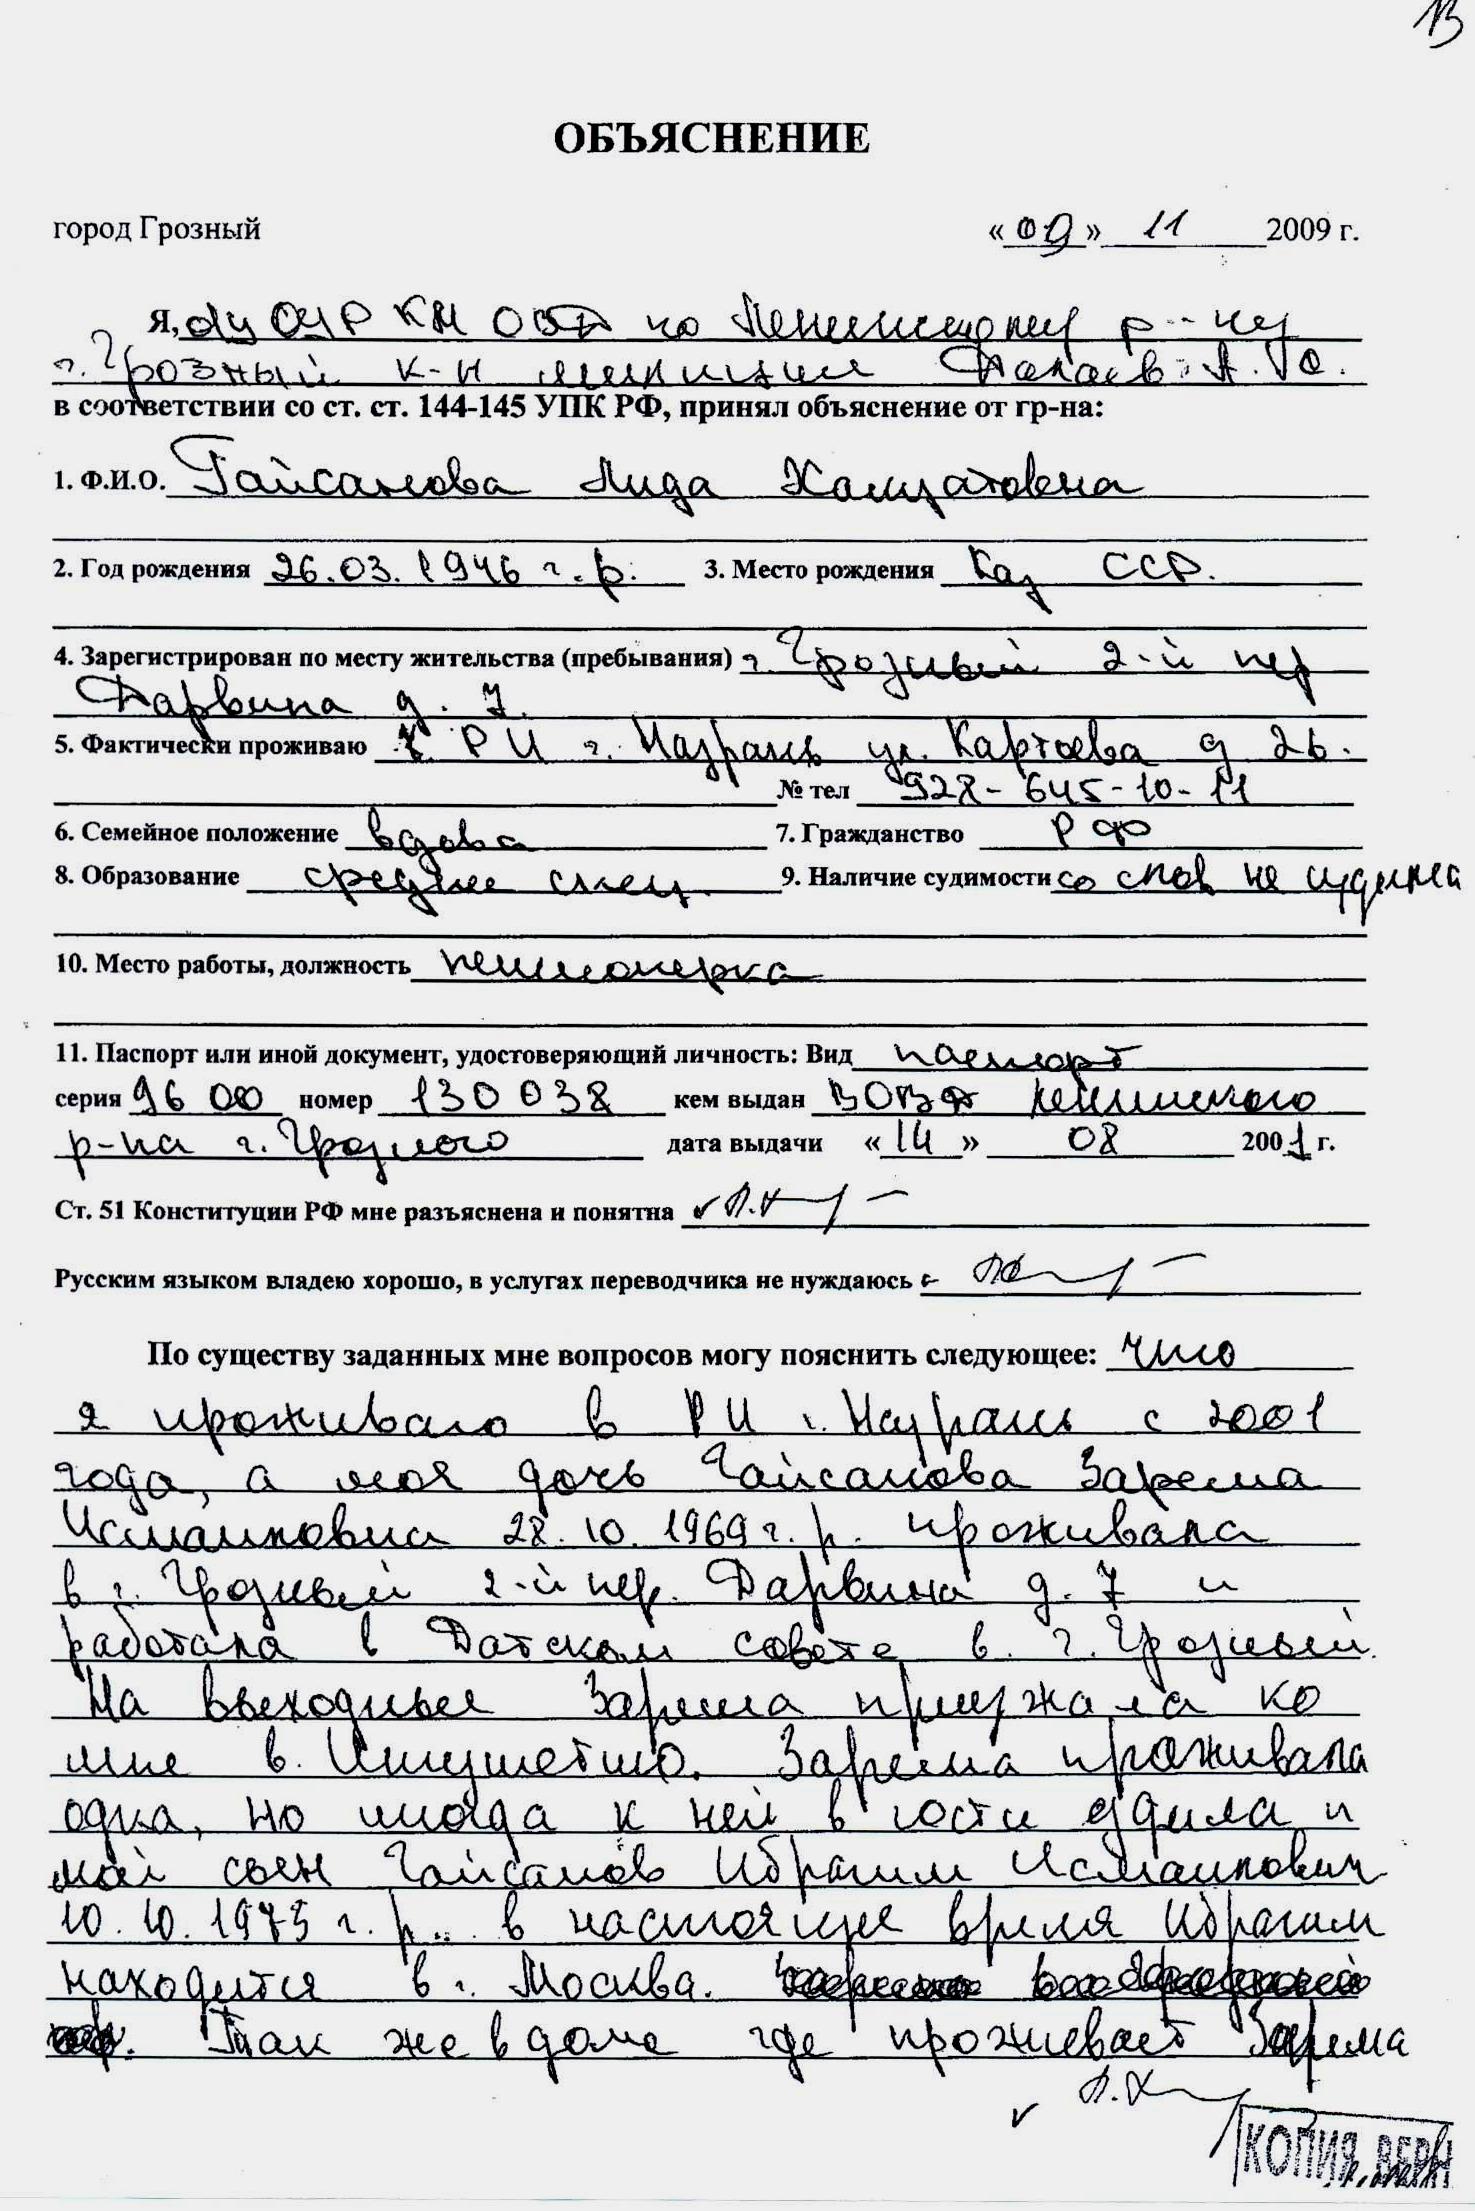 13
ОБЪЯСНЕНИЕ
город Грозный «09» 11 2009 г.
Я, о/у ОУР КМ ОВД по Ленинскому р-ну
г. Грозный к-н милиции А.Ю.
в соответствии со ст. ст. 144-145 УПК РФ, принял объяснение от гр-на:
1. Ф.И.О. Гайсанова Лида Хамзатовна
2. Год рождения 26.03.1946 г.р. 3. Место рождения Каз ССР.
4. Зарегистрирован по месту жительства (пребывания) г. Грозный 2-й пер
Дарвина д. 7.
5. Фактически проживаю РИ г. Назрань ул. Картоева д 26.
№ тел 928-645-10-11
6. Семейное положение вдова 7. Гражданство РФ
8. Образование средне спец. 9. Наличие судимости со слов не судима
10. Место работы, должность пенсионерка
11. Паспорт или иной документ, удостоверяющий личность: Вид паспорт
серия 96 00 номер 130038 кем выдан ВОВД Ленинского
р-на г. Грозного дата выдачи «14» 08 2001 г.
Ст. 51 Конституции РФ мне разъяснена и понятна
Русским языком владею хорошо, в услугах переводчика не нуждаюсь
По существу заданных мне вопросов могу пояснить следующее: что
я проживаю в РИ г. Назрань с 2001
года, а моя дочь Гайсанова Зарема
Исмаиловна 28.10.1969 г.р. проживала
в г. Грозный 2-й пер. Дарвина д. 7 и
работала в Датском совете в г. Грозный.
На выходные Зарема приезжала ко
мне в Ингушетию. Зарема проживала
одна, но иногда к ней в гости ездила и
мой сын Гайсанов Ибрагим Исмаилович
10.10.1975 г.р. в настоящее время Ибрагим
находится в г. Москва.
Так же в доме где проживает Зарема
КОПИЯ ВЕРН